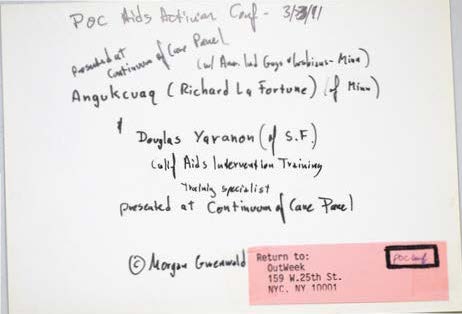 POC Aids Activism Conf - 3/3/91
presented at
Continuum of Care Panel
(w/ Am. Ind Gays & Lesbians - Minn)
Angukcuaq (Richard La Fortune) (of Minn)
&
Douglas Yaranon (of S.F.)
Calif Aids Intervention Training
Training specialist
presented at Continuum of Care Panel
© Morgan Gwenwald
Return to:
OutWeek
159 W.25th St.
NYC, NY 10001
POC Conf